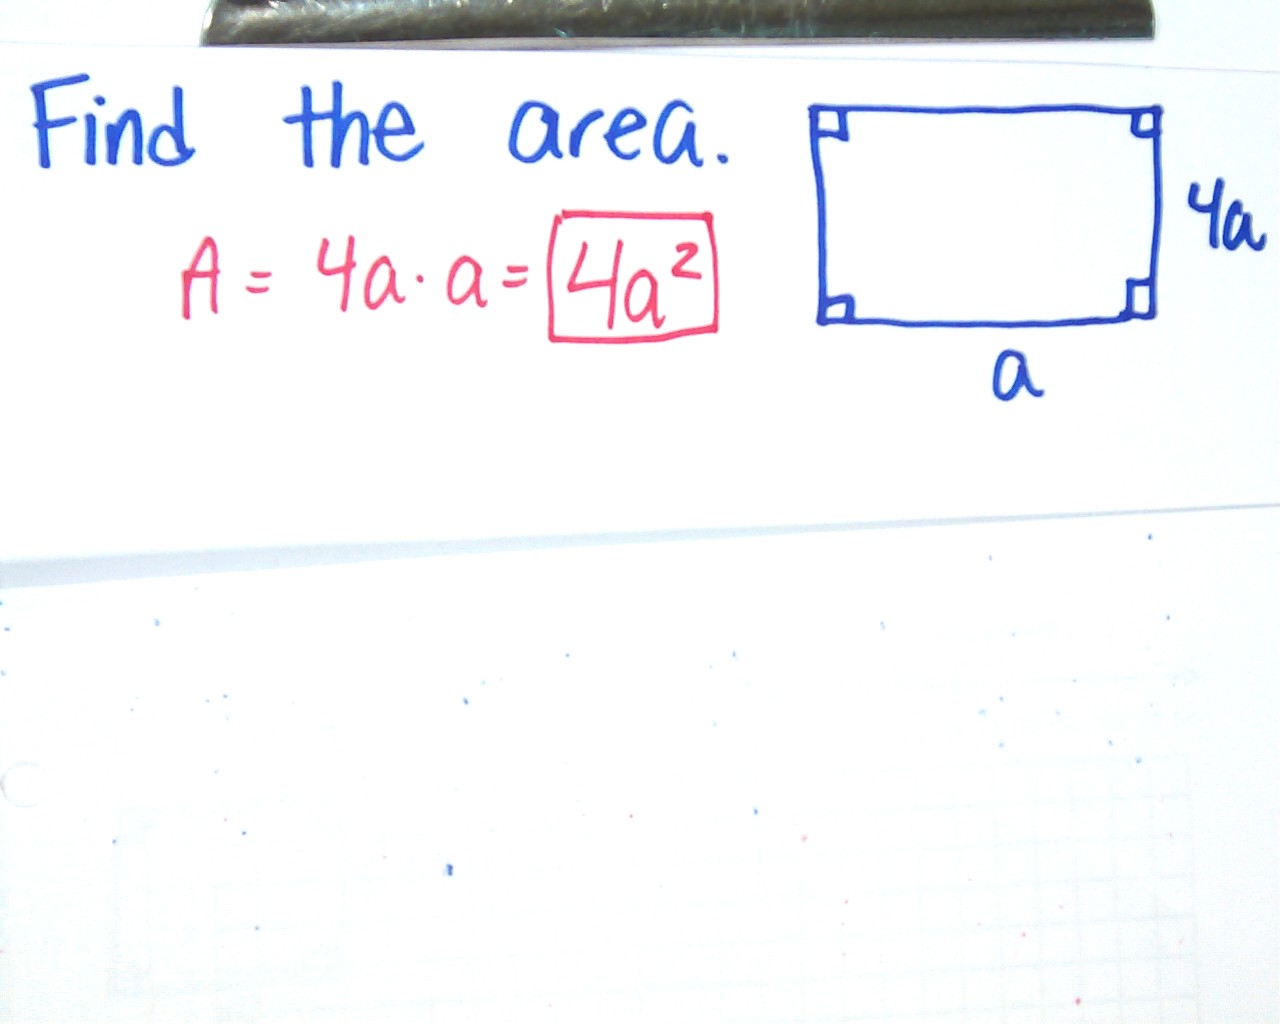 Find the area.
A = 4a · a = 4a²
4a
a